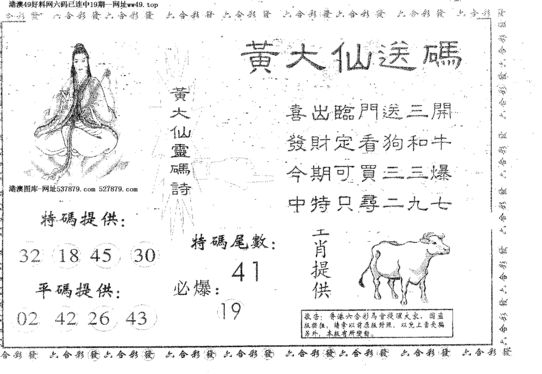 港澳49好料网六码已连中19期━网址ww49.top
六合彩發 六合彩發 六合彩發 六合彩發 六合彩發 六合彩發
黃大仙送碼
黃大仙靈碼詩
喜出臨門送三開
發財定看狗和牛
今期可買三三爆
中特只尋二九七
港澳图库━网址537879.com 527879.com
特碼提供:
32 18 45 30
平碼提供:
02 42 26 43
特碼尾數:
41
必爆:
19
工肖提供
敬告:香港六合彩馬會授權
六合彩發 六合彩發 六合彩發 六合彩發 六合彩發 六合彩發